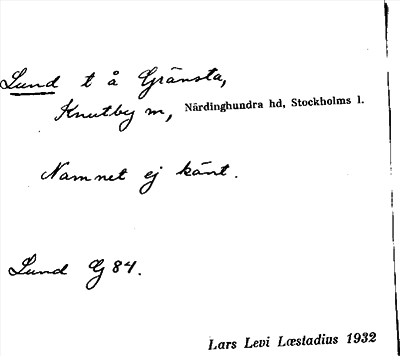 Lund t å Gränsta,
Knutby m, Närdinghundra hd, Stockholms l.
Namnet ej känt.
Lund G 84.
Lars Levi Læstadius 1932